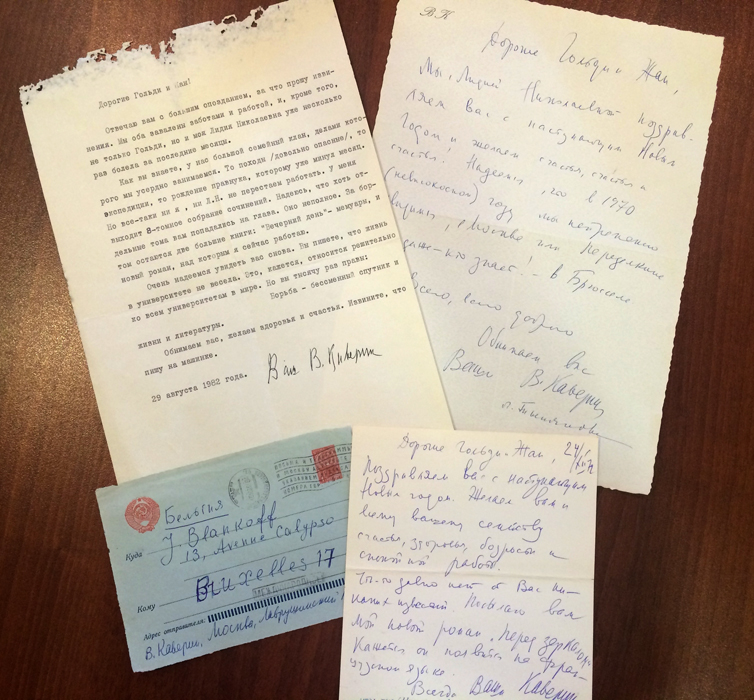 Дорогие Гольди и Жан!
Отвечаю вам с большим опозданием, за что прошу изви-
нения. Мы оба завалены заботами и работой, и, кроме того,
не только Гольди, но и моя Лидия Николаевна уже несколько
раз болела за последние месяцы.
Как вы знаете, у нас большой семейный клан, делами кото-
рого мы усердно занимаемся. То походы /довольно опасные/, то
экспедиции, то рождение правнука, которому уже минул месяц.
Но все-таки ни я, ни Л.Н. не перестаем работать. У меня
выходит 8-томное собрание сочинений. Надеюсь, что хоть от-
дельные тома вам попадались на глаза. Оно неполное. За бор-
том остаются две большие книги: "Вечерний день"- мемуары, и
новый роман, над которым я сейчас работаю.
Очень надеемся увидеть вас снова. Вы пишете, что жизнь
в университете не весела. Это, кажется, относится решительно
ко всем университетам в мире. Но вы тысячу раз правы:
Борьба - бессменный спутник и
жизни и литературы.
Обнимаем вас, желаем здоровья и счастья. Извините, что
пишу на машинке.
29 августа 1982 года.
Ваш В. Каверин
ВК
Дорогие Гольди и Жан,
Мы, Лидия Николаевна поздрав-
ляем Вас с наступающим Новым
Годом и желаем счастья, счастья и
счастья! Надеемся, что в 1970
(невисокосном) году мы непременно
увидимся, в Москве или Переделкине
даже - кто знает! - в Брюсселе
Всего, всего доброго
Обнимаем вас
Ваши В. Каверин
Л. Тынянова
Бельгия
Куда
J. Blankoff
13, Avenue Calypso
Bruxelles 17
Кому
Адрес отправителя:
В. Каверин, Москва, Лаврушинский
Дорогие Гольди и Жан,
24/XII
Поздравляем вас с наступающим
Новым годом. Желаем вам и
всему вашему семейству
счастья, здоровья, бодрости и
работы.
Что-то давно нет от Вас ни-
каких известий. Посылаю вам
мой новый роман "Перед зеркалом"
Кажется он появится на фран-
цузском языке.
Всегда Ваш Каверин